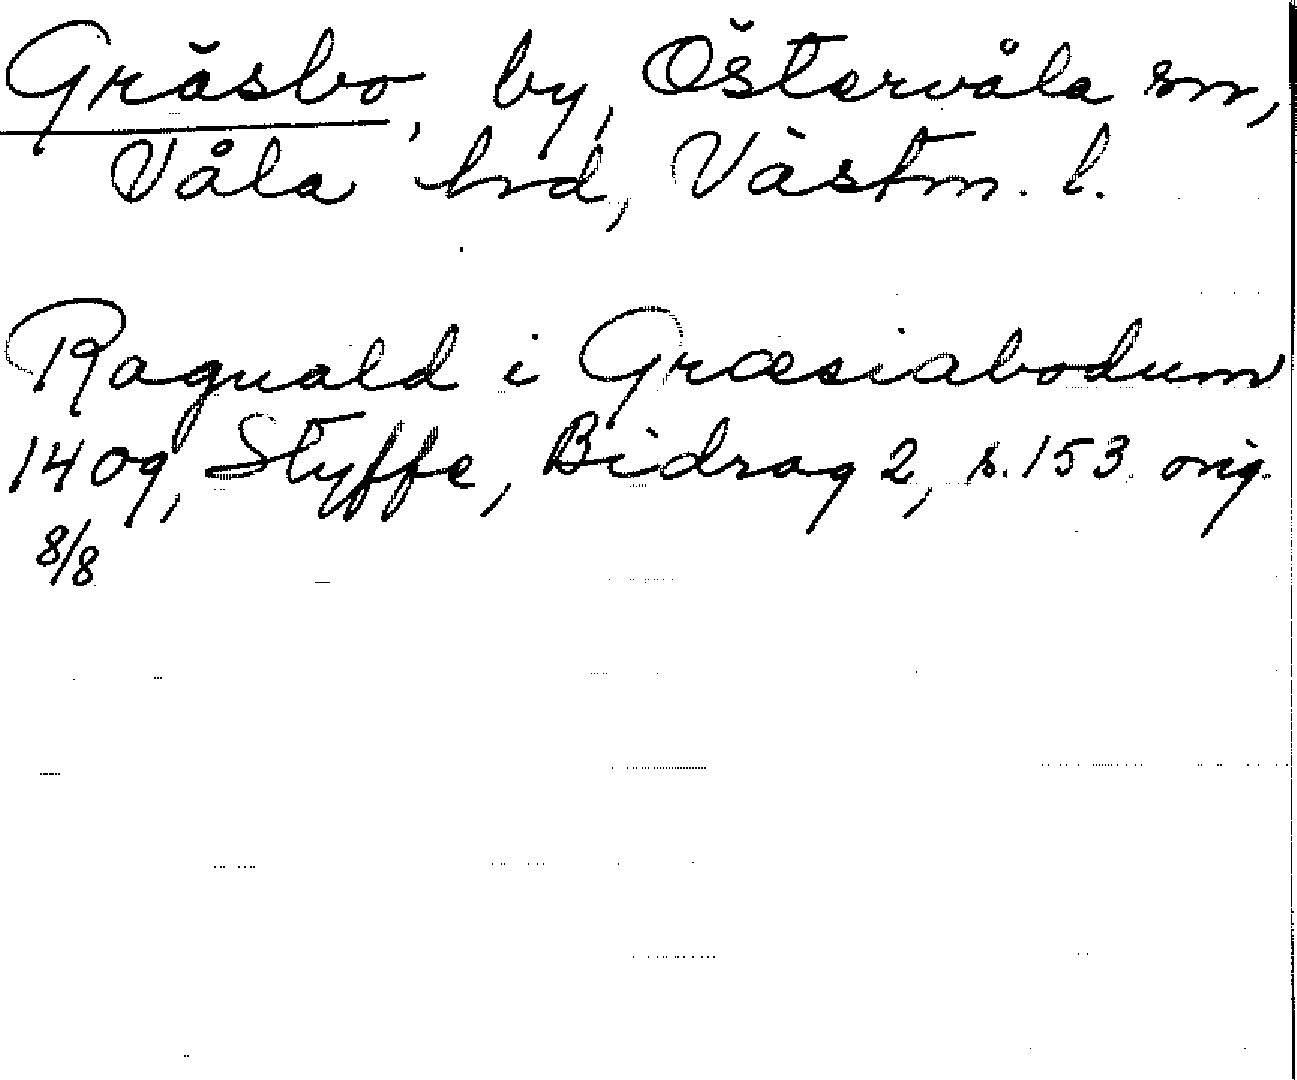 Gräsbo, by, Östervåla sn,
Våla hrd, Västm. l.
Raguald i Græsiabodum
1409, Styffe, Bidrag 2, s. 153. orig.
8/8